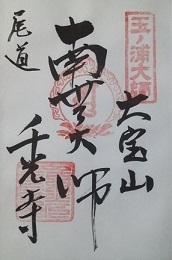 玉ノ浦大師
大宝山
南無大師
尾道
千光寺